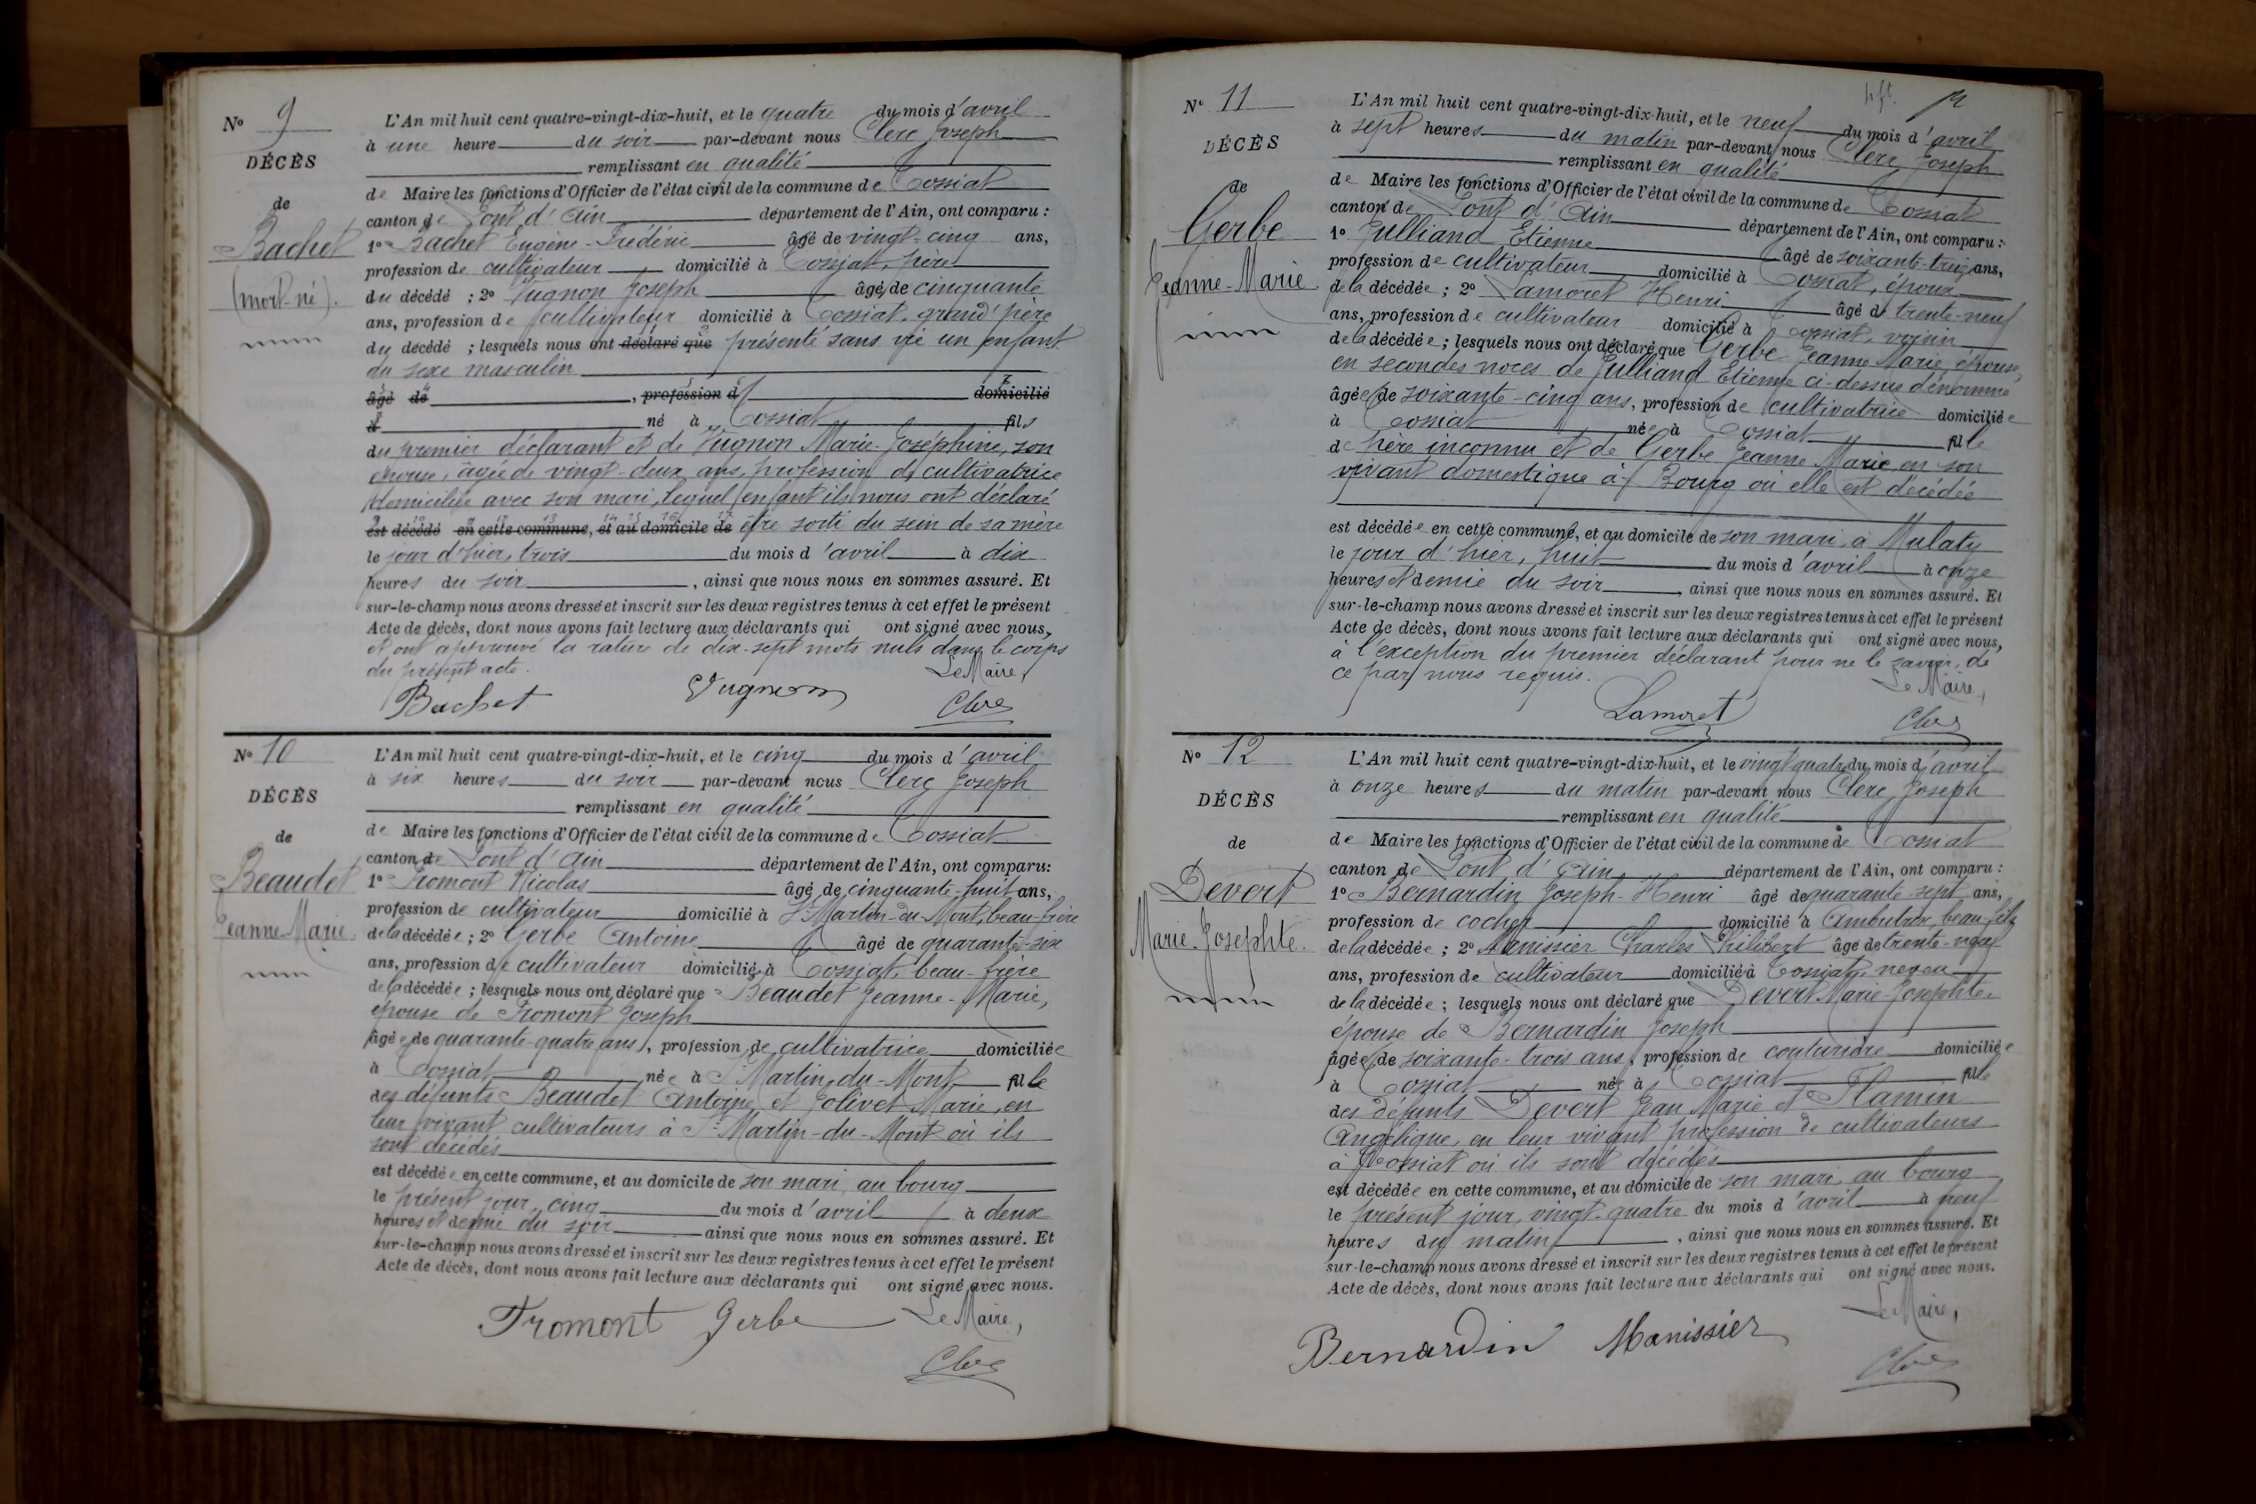 N° 9
DÉCÈS
de
Bachet
(mort-né).
L'An mil huit cent quatre-vingt-dix-huit, et le quatre du mois d'avril
à une heure du soir par-devant nous Clerc Joseph
remplissant en qualité
de Maire les fonctions d'Officier de l'état civil de la commune de Tossiat
canton de Pont d'Ain département de l'Ain, ont comparu :
1° Bachet Eugène-Frédéric âgé de vingt-cinq ans,
profession de cultivateur domicilié à Tossiat, père
du décédé ; 2° Vugnon Joseph âgé de cinquante
ans, profession de cultivateur domicilié à Tossiat, grand'père
du décédé ; lesquels nous ont déclaré que présenté sans vie un enfant
du sexe masculin
âgé de , profession d domicilié
à né à Tossiat fils
du premier déclarant et de Vugnon Marie-Joséphine, son
épouse, âgée de vingt-deux ans, profession de cultivatrice
domiciliée avec son mari, lequel enfant ils nous ont déclaré
est décédé en cette commune, et au domicile de être sorti du sein de sa mère
le jour d'hier, trois du mois d'avril à dix
heures du soir , ainsi que nous nous en sommes assuré. Et
sur-le-champ nous avons dressé et inscrit sur les deux registres tenus à cet effet le présent
Acte de décès, dont nous avons fait lecture aux déclarants qui ont signé avec nous,
et ont approuvé la rature de dix-sept mots nuls dans le corps
du présent acte. Le Maire,
Bachet Vugnon Clerc
N° 10
DÉCÈS
de
Beaudet
Jeanne-Marie.
L'An mil huit cent quatre-vingt-dix-huit, et le cinq du mois d'avril
à six heures du soir par-devant nous Clerc Joseph
remplissant en qualité
de Maire les fonctions d'Officier de l'état civil de la commune de Tossiat
canton de Pont d'Ain département de l'Ain, ont comparu:
1° Fromont Nicolas âgé de cinquante-huit ans,
profession de cultivateur domicilié à St Martin-du-Mont, beau-frère
de la décédée ; 2° Gerbe Antoine âgé de quarante-six
ans, profession de cultivateur domicilié à Tossiat, beau-frère
de la décédée ; lesquels nous ont déclaré que Beaudet Jeanne-Marie,
épouse de Fromont Joseph
âgée de quarante-quatre ans, profession de cultivatrice domiciliée
à Tossiat née à St Martin-du-Mont fille
des défunts Beaudet Antoine et Jolivet Marie, en
leur vivant cultivateurs à St Martin-du-Mont où ils
sont décédés
est décédée en cette commune, et au domicile de son mari, au bourg
le présent jour, cinq du mois d'avril à deux
heures et demie du soir ainsi que nous nous en sommes assuré. Et
sur-le-champ nous avons dressé et inscrit sur les deux registres tenus à cet effet le présent
Acte de décès, dont nous avons fait lecture aux déclarants qui ont signé avec nous.
Fromont Gerbe Le Maire,
Clerc
N° 11
DÉCÈS
de
Gerbe
Jeanne-Marie
L'An mil huit cent quatre-vingt-dix-huit, et le neuf du mois d'avril
à sept heures du matin par-devant nous Clerc Joseph
remplissant en qualité
de Maire les fonctions d'Officier de l'état civil de la commune de Tossiat
canton de Pont d'Ain département de l'Ain, ont comparu :
1° Julliand Etienne âgé de soixante-treize ans,
profession de cultivateur domicilié à Tossiat, époux
de la décédée ; 2° Lamoret Henri âgé de trente-neuf
ans, profession de cultivateur domicilié à Tossiat, voisin
de la décédée ; lesquels nous ont déclaré que Gerbe Jeanne Marie, épouse,
en secondes noces de Julliand Etienne ci-dessus dénommé
âgée de soixante-cinq ans, profession de cultivatrice domiciliée
à Tossiat née à Tossiat fille
de père inconnu et de Gerbe Jeanne Marie, en son
vivant domestique à Bourg où elle est décédée
est décédée en cette commune, et au domicile de son mari, à Mulaty
le jour d'hier, huit du mois d'avril à onze
heures et demie du soir, ainsi que nous nous en sommes assuré. Et
sur-le-champ nous avons dressé et inscrit sur les deux registres tenus à cet effet le présent
Acte de décès, dont nous avons fait lecture aux déclarants qui ont signé avec nous,
à l'exception du premier déclarant pour ne le savoir, de
ce par nous requis. Le Maire,
Lamoret Clerc
N° 12
DÉCÈS
de
Devert
Marie-Josephte.
L'An mil huit cent quatre-vingt-dix-huit, et le vingt quatre du mois d'avril
à onze heures du matin par-devant nous Clerc Joseph
remplissant en qualité
de Maire les fonctions d'Officier de l'état civil de la commune de Tossiat
canton de Pont d'Ain département de l'Ain, ont comparu :
1° Bernardin Joseph-Henri âgé de quarante sept ans,
profession de cocher domicilié à Ambutrix, beau-fils
de la décédée ; 2° Manissier Charles Philibert âgé de trente-neuf
ans, profession de cultivateur domicilié à Tossiat, neveu
de la décédée ; lesquels nous ont déclaré que Devert Marie-Josephte,
épouse de Bernardin Joseph
âgée de soixante-trois ans, profession de couturière domiciliée
à Tossiat née à Tossiat fille
des défunts Devert Jean Marie et Flamin
Angélique, en leur vivant profession de cultivateurs
à Tossiat où ils sont décédés
est décédée en cette commune, et au domicile de son mari, au bourg
le présent jour, vingt-quatre du mois d'avril à neuf
heures du matin , ainsi que nous nous en sommes assuré. Et
sur-le-champ nous avons dressé et inscrit sur les deux registres tenus à cet effet le présent
Acte de décès, dont nous avons fait lecture aux déclarants qui ont signé avec nous.
Le Maire,
Bernardin Manissier
Clerc